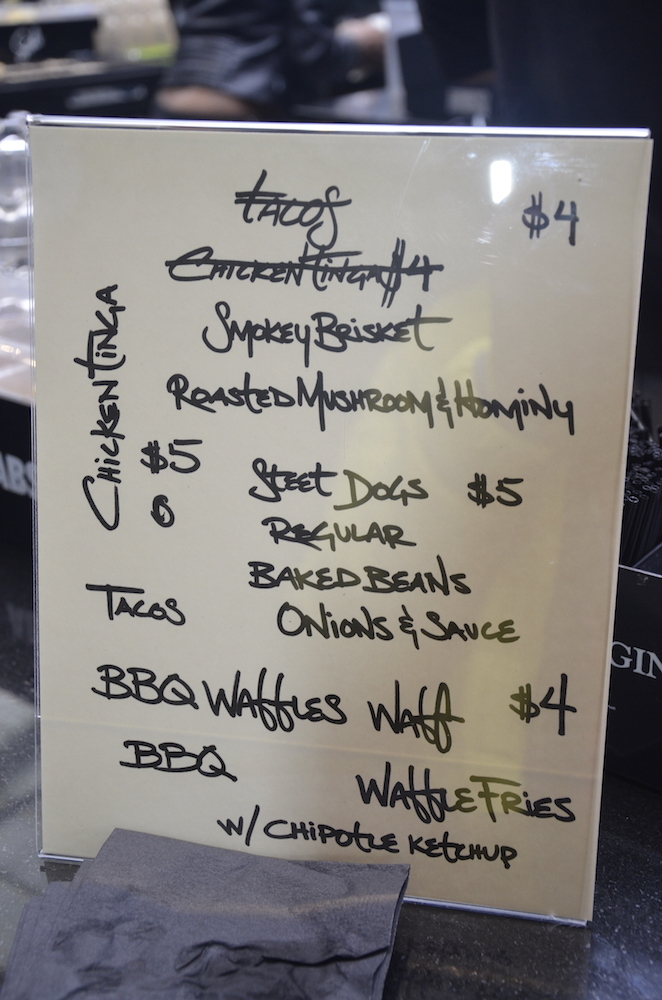 TACOS $4
CHICKEN TINGA $4
SMOKEY BRISKET
ROASTED MUSHROOM & HOMINY
CHICKEN TINGA
$5
STEET DOGS $5
REGULAR
BAKED BEANS
TACOS
ONIONS & SAUCE
BBQ WAFFLES WAFF $4
BBQ
WAFFLE FRIES
W/ CHIPOTLE KETCHUP
ABS
GIN